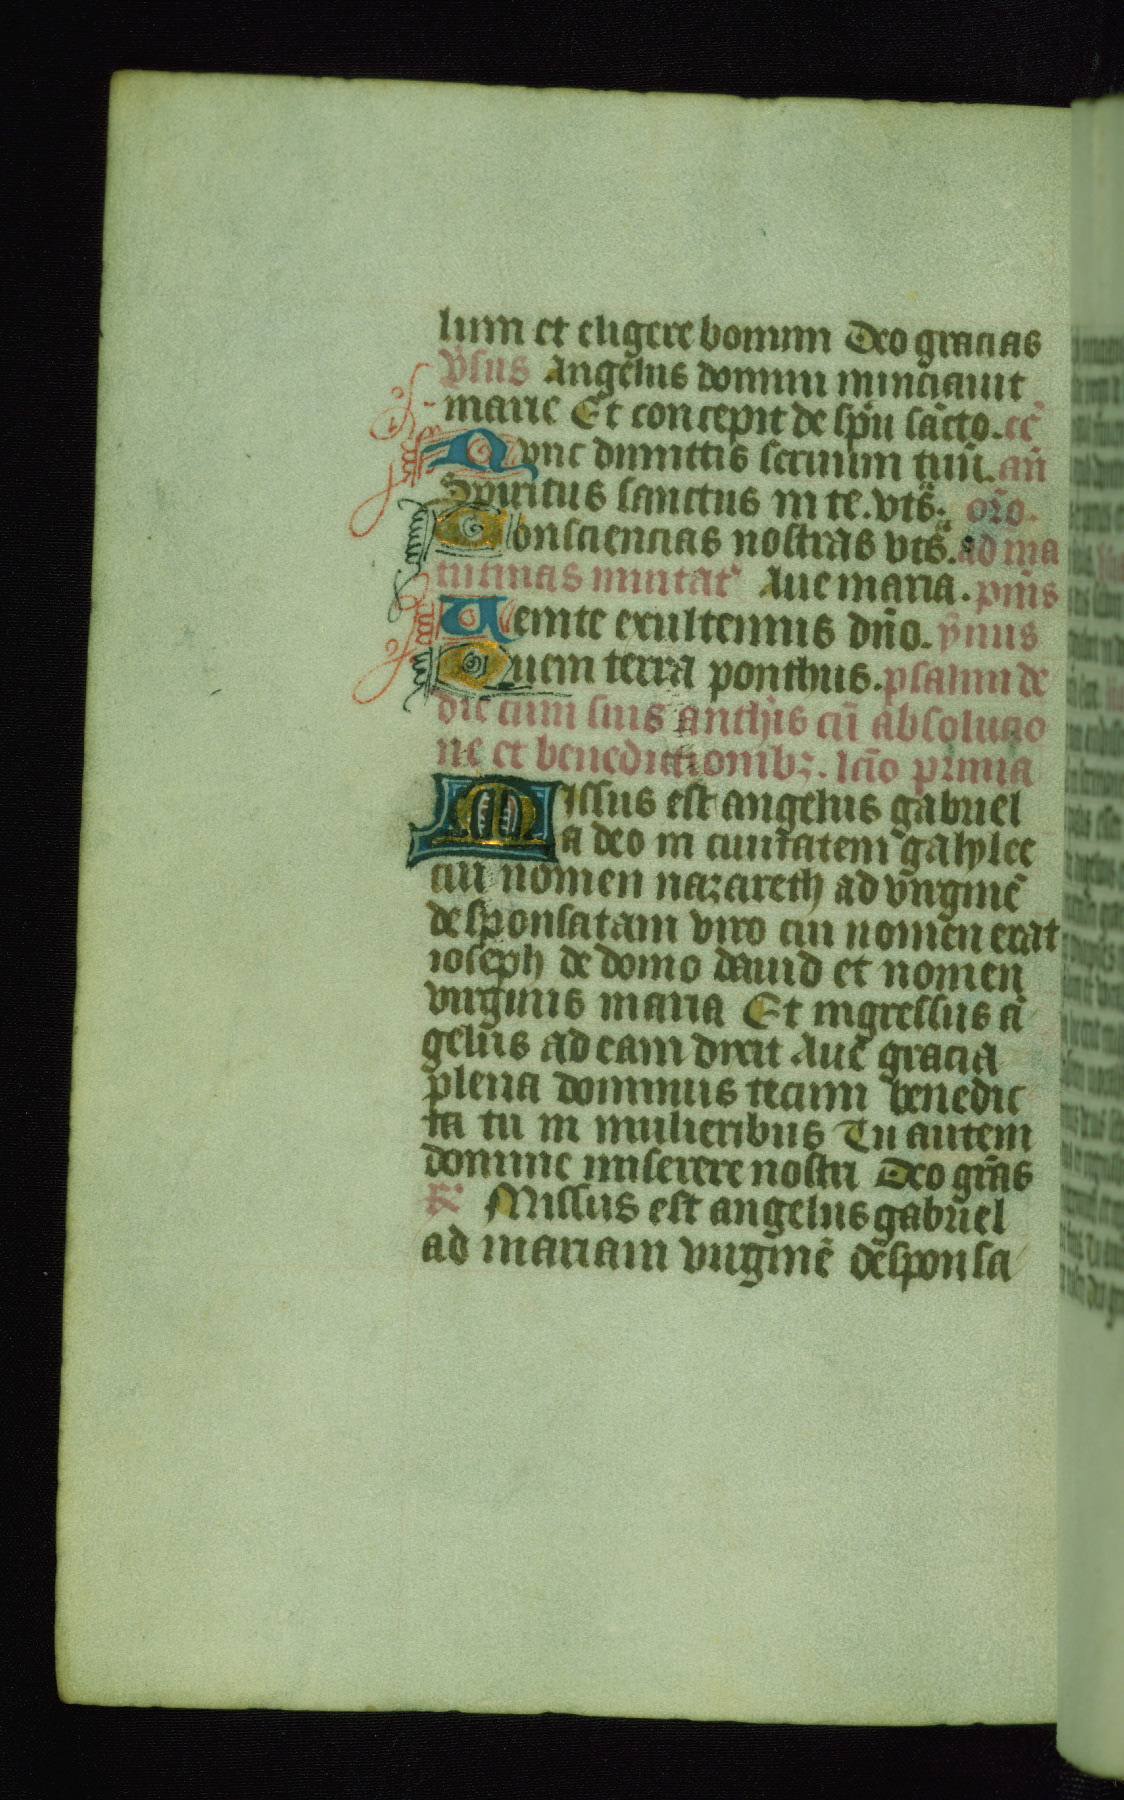 lum et eligere bonum Deo gracias
v̄sus Angelus domini nunciauit
marie Et concepit de sp̄u sācto. cē
Nunc dimittis seruum tuū. an̄
Spiritus sanctus in te. vts̄. or̄o.
Consciencias nostras vts̄. ad ma
tutinas inuitat' Aue maria. pm̄s
Uenite exultemus dn̄o. ȳnus
Quem terra ponthus. psalmi de
die cum suis anthi̇s cū absolucio
ne et benedictionibꝫ. lcīo prima
Missus est angelus gabriel
a deo in ciuitatem galylee
cui nomen nazareth ad virginē
desponsatam viro cui nomen erat
ioseph de domo dauid et nomen
virginis maria Et ingressus ā
gelus ad eam dixit Aue gracia
plena dominus tecum benedic
ta tu in mulieribus Tu autem
domine miserere nostri Deo grās
R̄ Missus est angelus gabriel
ad mariam virginē desponsa